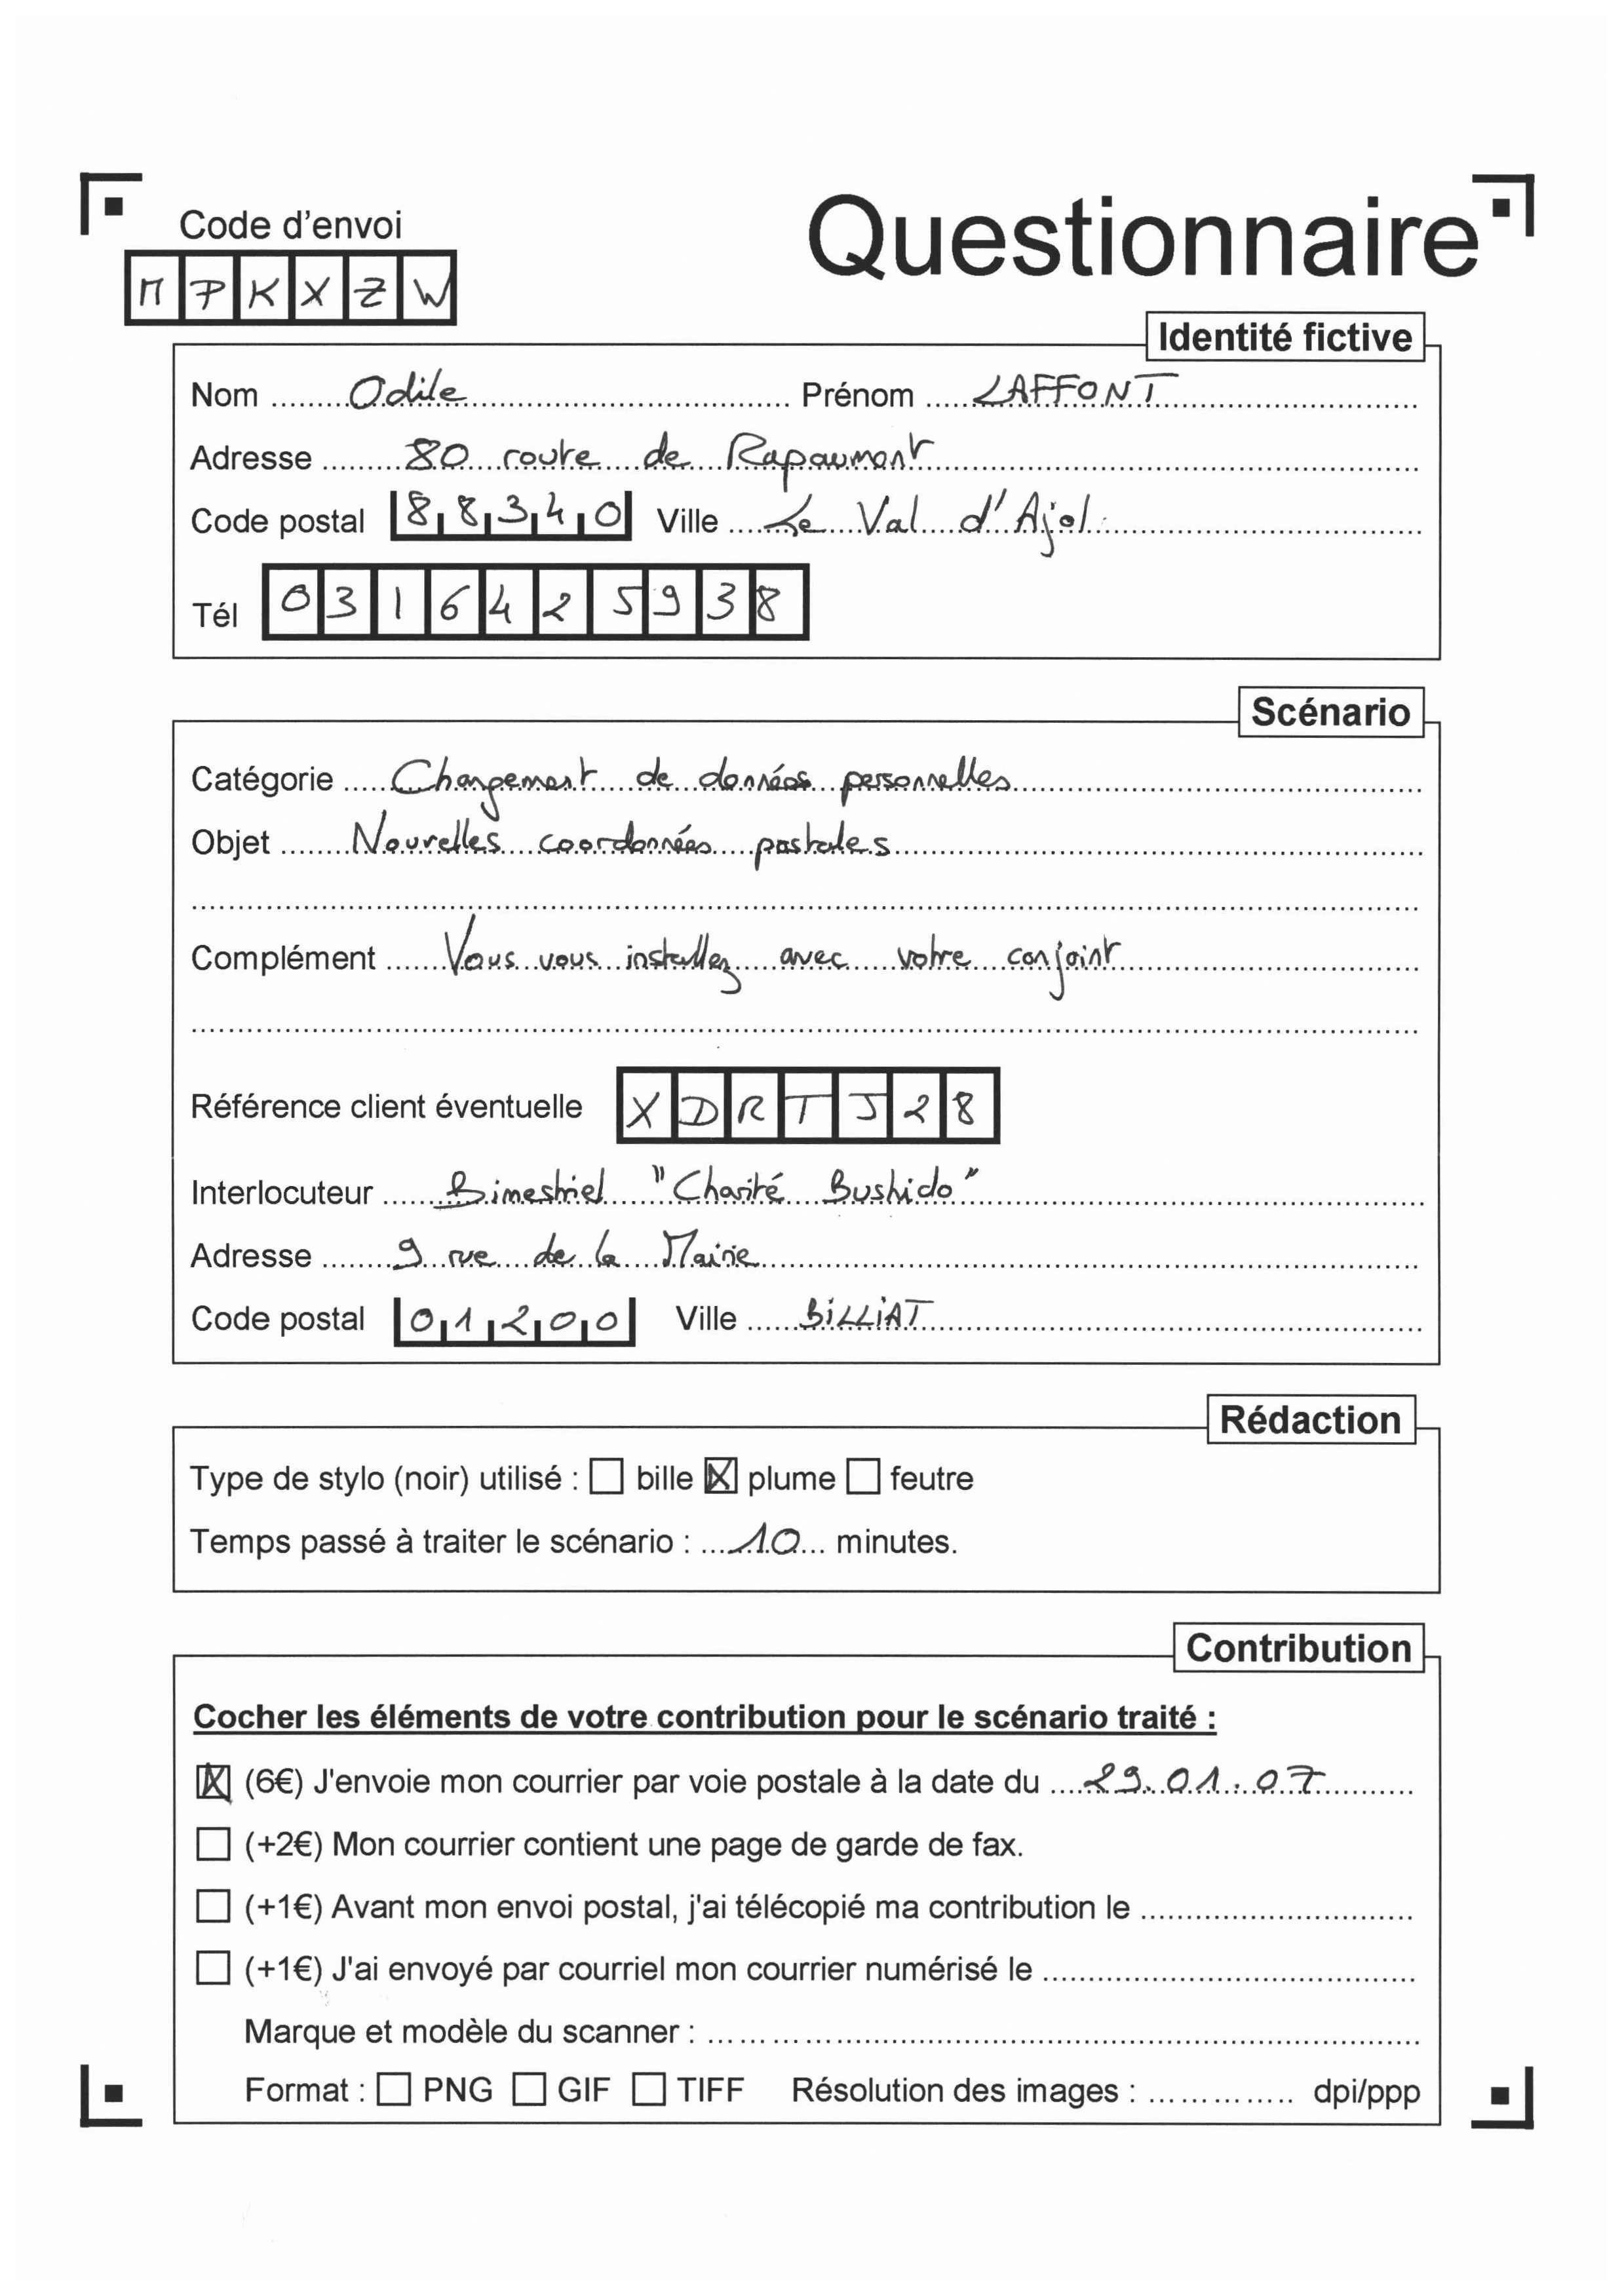 Code d'envoi
Questionnaire
M P K X Z W
Identité fictive
Nom ......... Odile ......... Prénom ..... LAFFONT .........
Adresse ......... 80 route de Rapaumont .........
Code postal 8 8 3 4 0 Ville .... Le Val d'Ajol .........
Tél 0 3 1 6 4 2 5 9 3 8
Scénario
Catégorie ..... Changement de données personnelles .........
Objet ........ Nouvelles coordonnées postales .........
Complément ...... Vous vous installez avec votre conjoint .........
Référence client éventuelle X D R T J 2 8
Interlocuteur ...... Bimestriel "Charité Bushido" .........
Adresse ....... 9 rue de la Mairie .........
Code postal 0 1 2 0 0 Ville ...... BiLLiAT .........
Rédaction
Type de stylo (noir) utilisé : ☐ bille ☒ plume ☐ feutre
Temps passé à traiter le scénario : ... 10 ... minutes.
Contribution
Cocher les éléments de votre contribution pour le scénario traité :
☒ (6€) J'envoie mon courrier par voie postale à la date du .... 29.01.07 .........
☐ (+2€) Mon courrier contient une page de garde de fax.
☐ (+1€) Avant mon envoi postal, j'ai télécopié ma contribution le .........
☐ (+1€) J'ai envoyé par courriel mon courrier numérisé le .........
Marque et modèle du scanner : .........
Format : ☐ PNG ☐ GIF ☐ TIFF Résolution des images : ......... dpi/ppp